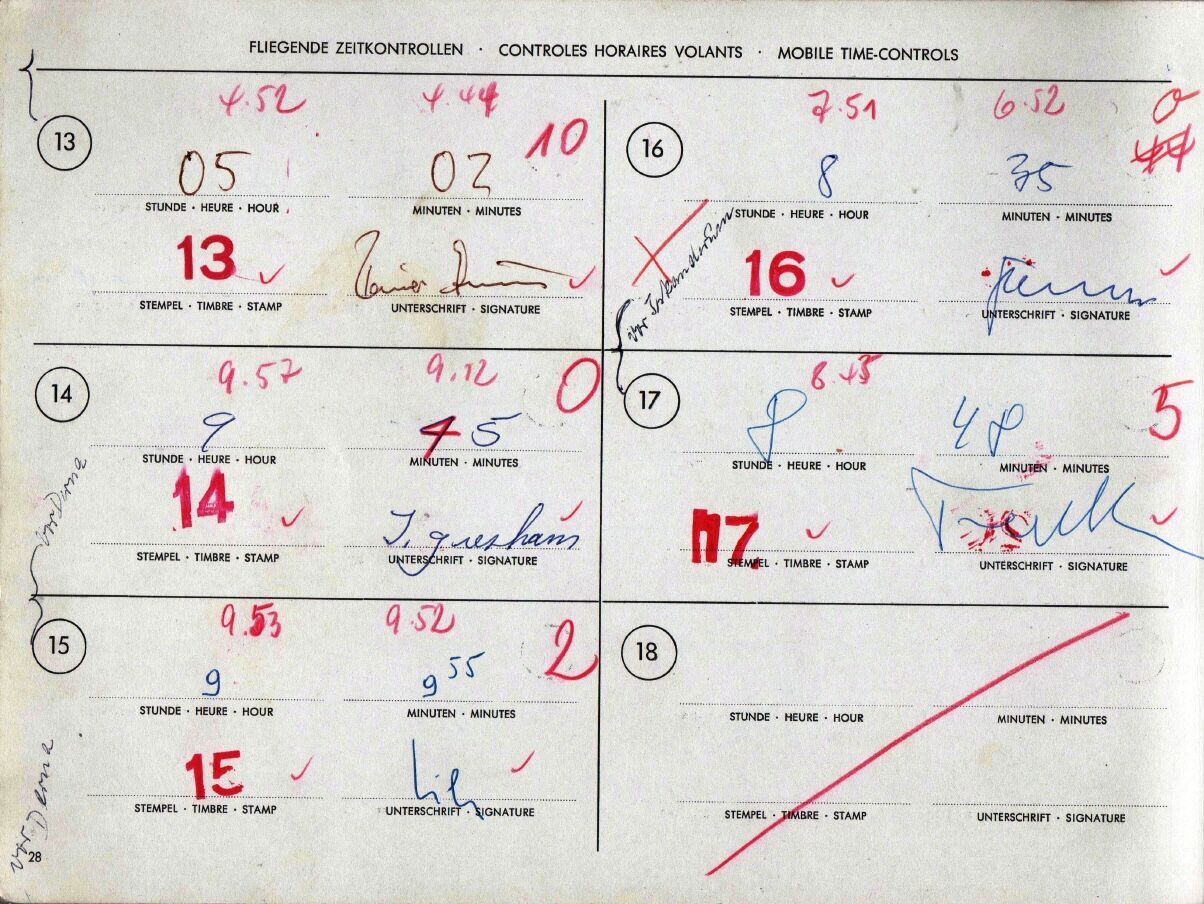 FLIEGENDE ZEITKONTROLLEN · CONTROLES HORAIRES VOLANTS · MOBILE TIME-CONTROLS
4.52 4.44
13 10
05 02
STUNDE · HEURE · HOUR MINUTEN · MINUTES
13
STEMPEL · TIMBRE · STAMP UNTERSCHRIFT · SIGNATURE
9.57 9.12
14 0
9 45
STUNDE · HEURE · HOUR MINUTEN · MINUTES
14
STEMPEL · TIMBRE · STAMP UNTERSCHRIFT · SIGNATURE
vor Derna
9.53 9.52
15 2
9 9 55
STUNDE · HEURE · HOUR MINUTEN · MINUTES
15
STEMPEL · TIMBRE · STAMP UNTERSCHRIFT · SIGNATURE
vor Derna
28
7.51 6.52 0
16
8 35
STUNDE · HEURE · HOUR MINUTEN · MINUTES
16
vor
STEMPEL · TIMBRE · STAMP UNTERSCHRIFT · SIGNATURE
8.43
17 5
8 48
STUNDE · HEURE · HOUR MINUTEN · MINUTES
17
STEMPEL · TIMBRE · STAMP UNTERSCHRIFT · SIGNATURE
18
STUNDE · HEURE · HOUR MINUTEN · MINUTES
STEMPEL · TIMBRE · STAMP UNTERSCHRIFT · SIGNATURE